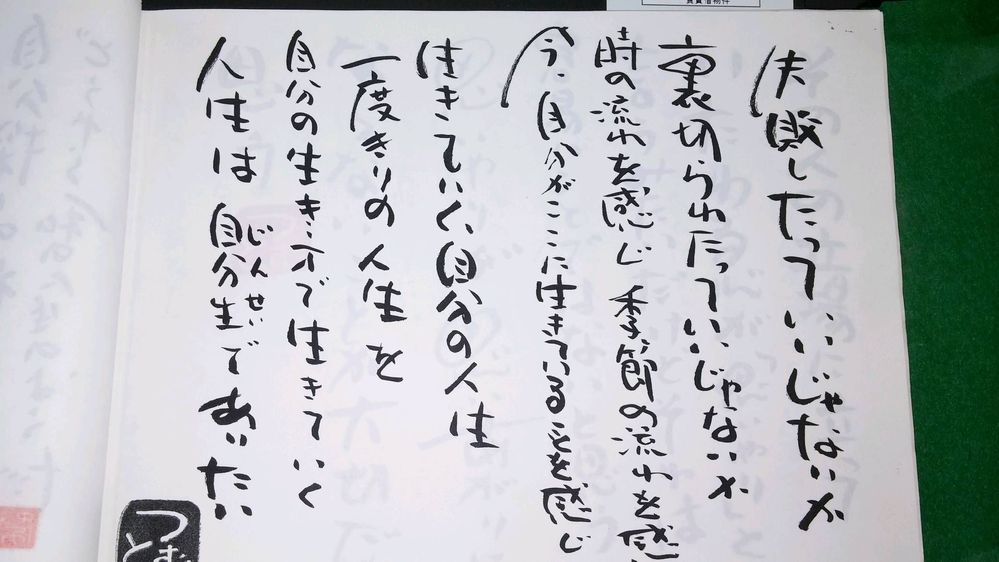 失敗したっていいじゃないか
裏切られたっていいじゃないか
時の流れを感じ 季節の流れを感
今、自分がここに生きていることを感じ
生きていく、自分の人生
一度きりの人生を
自分の生き方で生きていく
人生は 自分生であいたい
じんせい
つむ
と
賃貸借物件